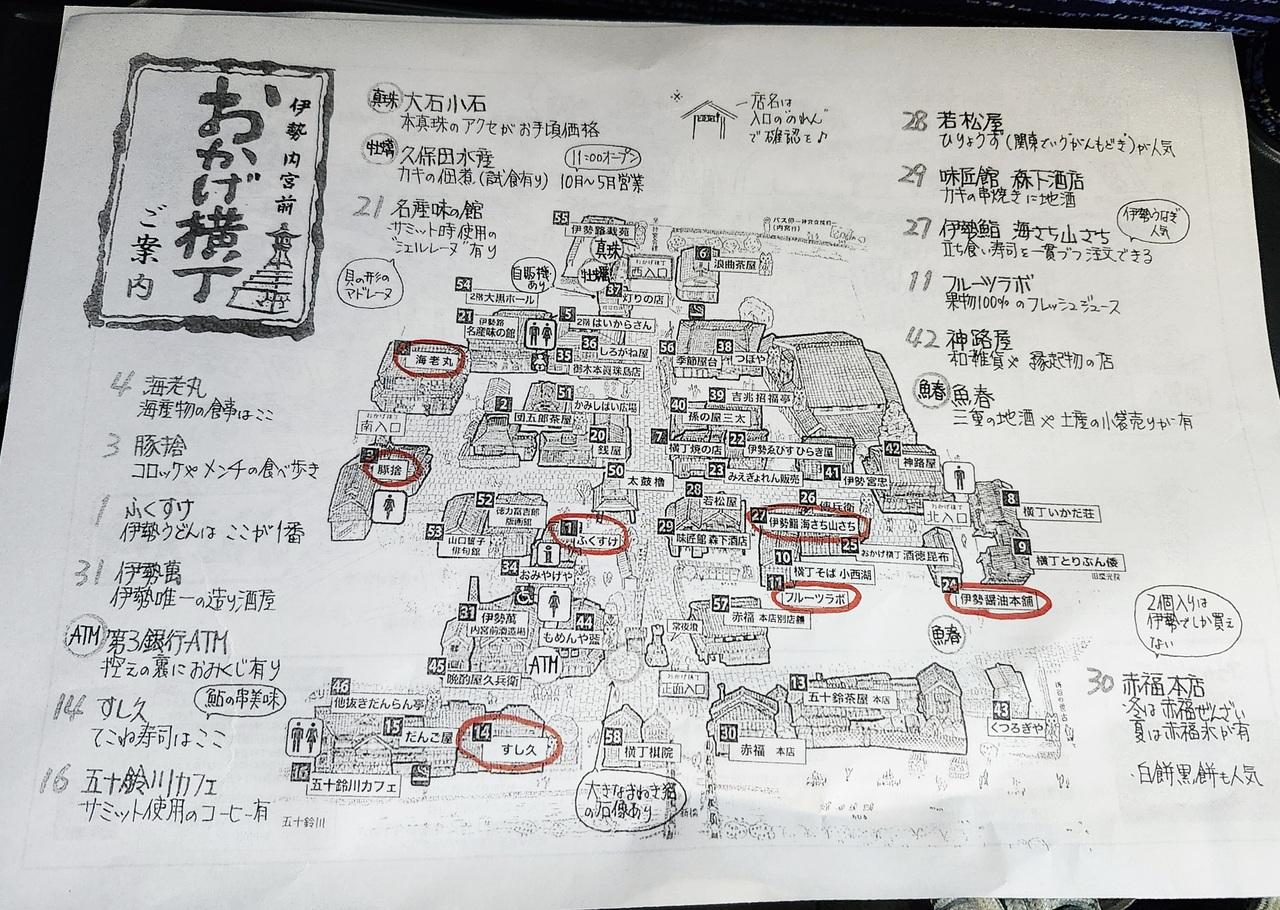 伊勢 内宮前
おかげ横丁
ご案内
真珠 大石小石
本真珠のアクセがお手頃価格
牡蠣 久保田水産
11:00オープン
カキの佃煮(試食有り) 10月〜5月営業
21 名産味の館
サミット時使用の
"ジェルレーヌ"有り
貝の形の
マドレーヌ
※
店名は
入口の"のれん"
で確認を♪
28 若松屋
ひりょうず(関東でいうがんもどき)が人気
29 味匠館 森下酒店
カキの串焼きに地酒
伊勢うなぎ
人気
27 伊勢鮨 海さち山さち
立ち食い寿司を一貫づつ注文できる
11 フルーツラボ
果物100%のフレッシュジュース
42 神路屋
和雑貨や縁起物の店
魚春 魚春
三重の地酒や土産の小袋売りが有
4 海老丸
海産物の食事はここ
3 豚捨
コロッケやメンチの食べ歩き
1 ふくすけ
伊勢うどんは ここが1番
31 伊勢萬
伊勢唯一の造り酒屋
ATM 第3銀行ATM
控えの裏におみくじ有り
14 すし久
鮎の串美味
てこね寿司はここ
16 五十鈴川カフェ
サミット使用のコーヒー有
2個入りは
伊勢でしか買え
ない
30 赤福本店
・冬は赤福ぜんざい
夏は赤福氷が有
・白餅黒餅も人気
55 伊勢路栽苑
真珠
牡蠣
西入口
6 浪曲茶屋
自販機
あり
37 灯りの店
54 2階大黒ホール
21 伊勢路
名産味の館
5 2階はいからさん
36 しろがね屋
35 御木本真珠島店
56 季節屋台
38 つぼや
4 海老丸
おかげ横丁
南入口
51 かみしばい広場
2 団五郎茶屋
39 吉兆招福亭
40 孫の屋三太
20 銭屋
7 横丁焼の店
22 伊勢ゑびすひらき屋
3 豚捨
50 太鼓櫓
23 みえぎょれん販売
41 伊勢宮忠
42 神路屋
52 徳力富吉郎
版画館
28 若松屋
26
8 横丁いかだ荘
53 山口誓子
俳句館
1 ふくすけ
29 味匠館 森下酒店
27 伊勢鮨 海さち山さち
北入口
34 おみやげや
10 横丁そば 小西湖
25 おかげ横丁 酒徳昆布
9 横丁とりぶん傣
11 フルーツラボ
24 伊勢醤油本舗
31 伊勢萬
内宮前酒造場
44 もめんや藍
57 赤福 本店別店舗
常夜燈
魚春
ATM
45 晩酌屋久兵衛
おかげ横丁
正面入口
46 他抜きだんらん亭
15 だんご屋
14 すし久
16 五十鈴川カフェ
58 横丁棋院
30 赤福 本店
13 五十鈴茶屋 本店
43 くつろぎや
大きなまねき猫
の石像あり
五十鈴川